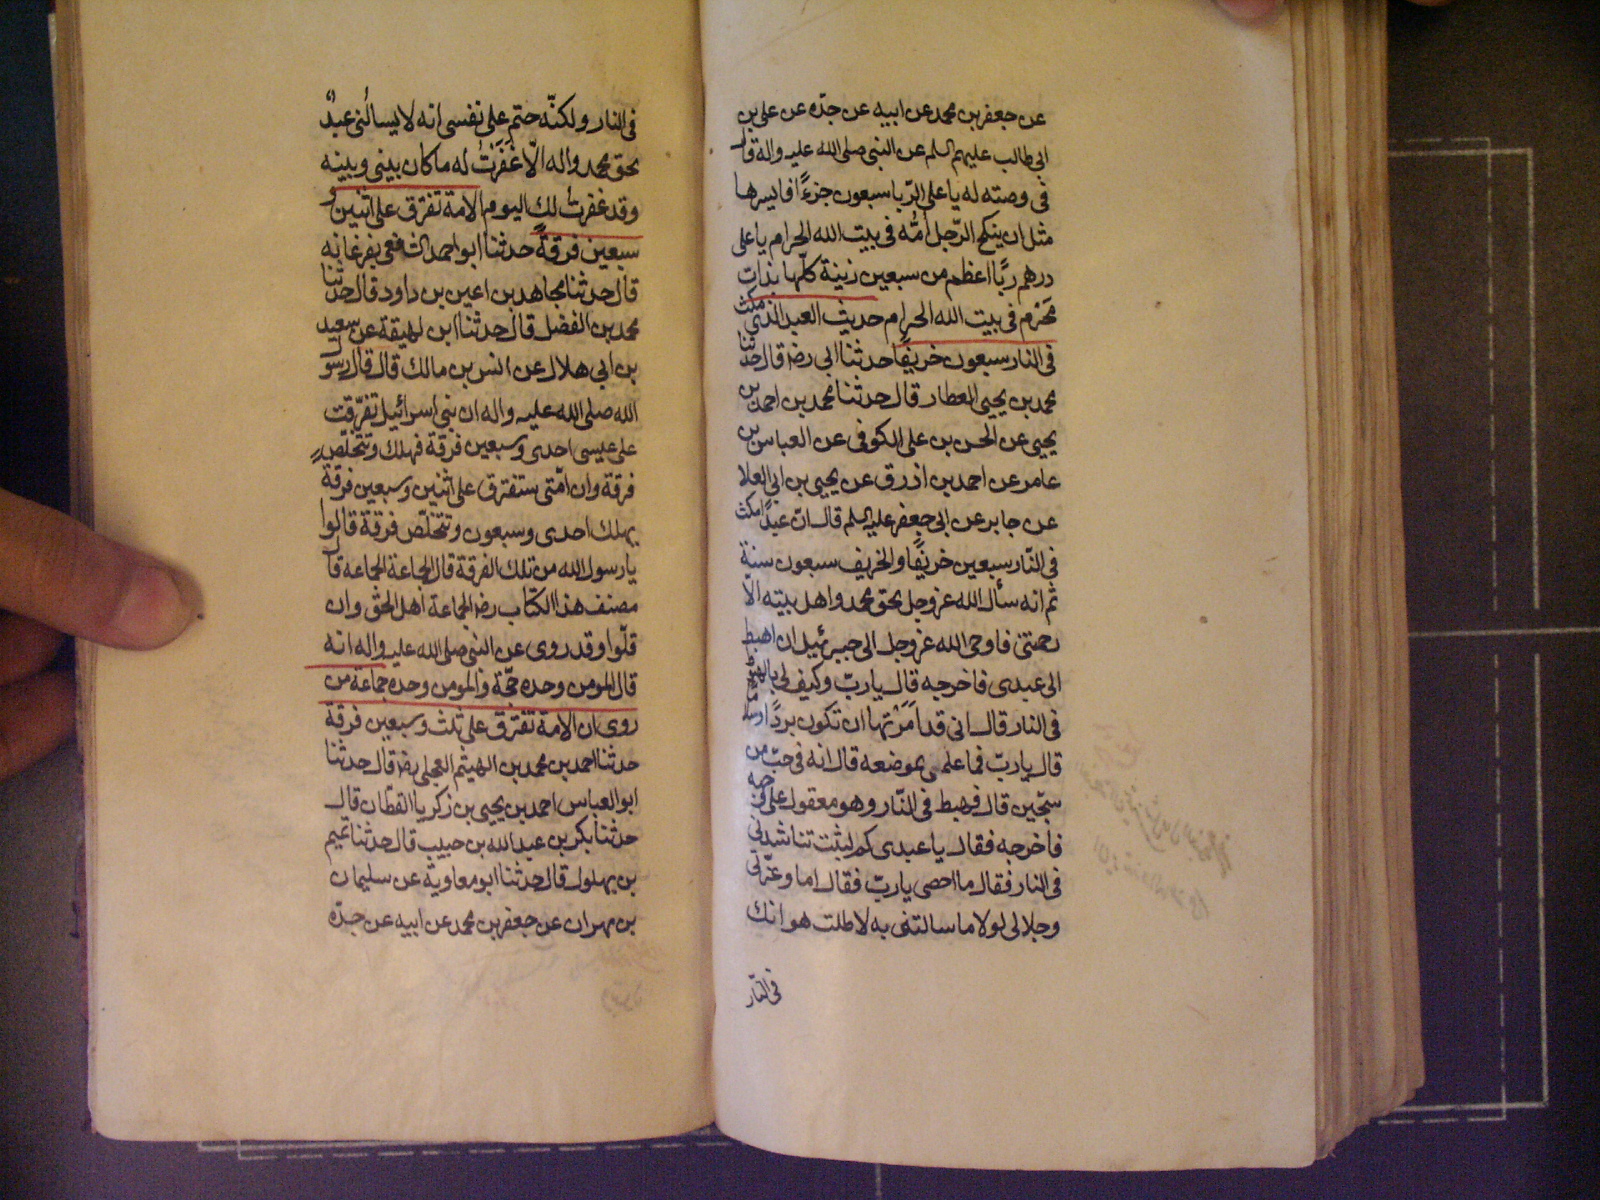 عن جعفر بن محمد عن ابيه عن جدّه عن على بن
ابى طالب عليهم السلم عن النبى صلى الله عليه واله قال
فى وصته له يا على الرّبا سبعون جزءًا فايسرها
مثل ان ينكح الرّجل أمّه فى بيت الله الحرام يا على
درهم ربًا اعظم من سبعين زنية كلّها بذات
محرم فى بيت الله الحرام حديث العبد الذى مكث
فى النار سبعون خريفًا حدثنا ابى رضه قال حدثنا
محمد بن يحيى العطار قال حدثنا محمد بن احمد بن
يحيى عن الحسن بن على الكوفى عن العباس بن
عامر عن احمد بن ازرق عن يحيى بن ابى العلا
عن جابر عن ابى جعفر عليه السلم قال انّ عبدًا مكث
فى النّار سبعين خريفًا والخريف سبعون سنة
ثم انه سأل الله عز وجل بحق محمد واهل بيته الّا
رحمتنى فاوحى الله عز وجل الى جبرئيل ان اهبط
الى عبدى فاخرجه قال ياربّ وكيف لى بالهبوط
فى النار قال انى قد أمرتها ان تكون بردًا وسلاما
قال ياربّ فما علمى بموضعه قال انه فى جبّ من
سجّين قال فهبط فى النّار وهو معقول على وجهه
فاخرجه فقال يا عبدى كم لبثت تناشدنى
فى النار فقال ما احصى ياربّ فقال اما وعزّتى
وجلالى لولا ما سالتنى به لاطلت هوانك
فى النّار
فى النار ولكنّه حتم على نفسى انه لا يسألنى عبدٌ
بحق محمد واله الّا غفرتُ له ما كان بينى وبينه
وقد غفرت لك اليوم الامة تفرق على اثنين و
سبعين فرقةً حدثنا ابو احمد الشافعى بفرغانه
قال حدثنا مجاهد بن اعين بن داود قال حدثنا
محمد بن الفضل قال حدثنا ابن لهيقة عن سعيد
بن ابى هلال عن انس بن مالك قال قال رسول
الله صلى الله عليه واله ان بنى اسرائيل تفرّقت
على عيسى احدى وسبعين فرقة فهلك وتتخلّص
فرقة وان امّتى ستفترق على اثنين وسبعين فرقة
يهلك احدى وسبعون وتتخلّص فرقة قالوا
يا رسول الله من تلك الفرقة قال الجماعة الجماعة قال
مصنف هذا الكتاب رضه الجماعة اهل الحق وان
قلّوا وقد روى عن النبى صلى الله عليه واله انه
قال المومن وحده حجّة والمومن وحده جماعة من
روى ان الامة تفترق على ثلث وسبعين فرقة
حدثنا احمد بن محمد بن الهيثم العجلى رضه قال حدثنا
ابو العباس احمد بن يحيى بن زكريا القطان قال
حدثنا بكر بن عبد الله بن حبيب قال حدثنا تميم
بن بهلول قال حدثنا ابو معاوية عن سليمان
بن مهران عن جعفر بن محمد عن ابيه عن جدّه